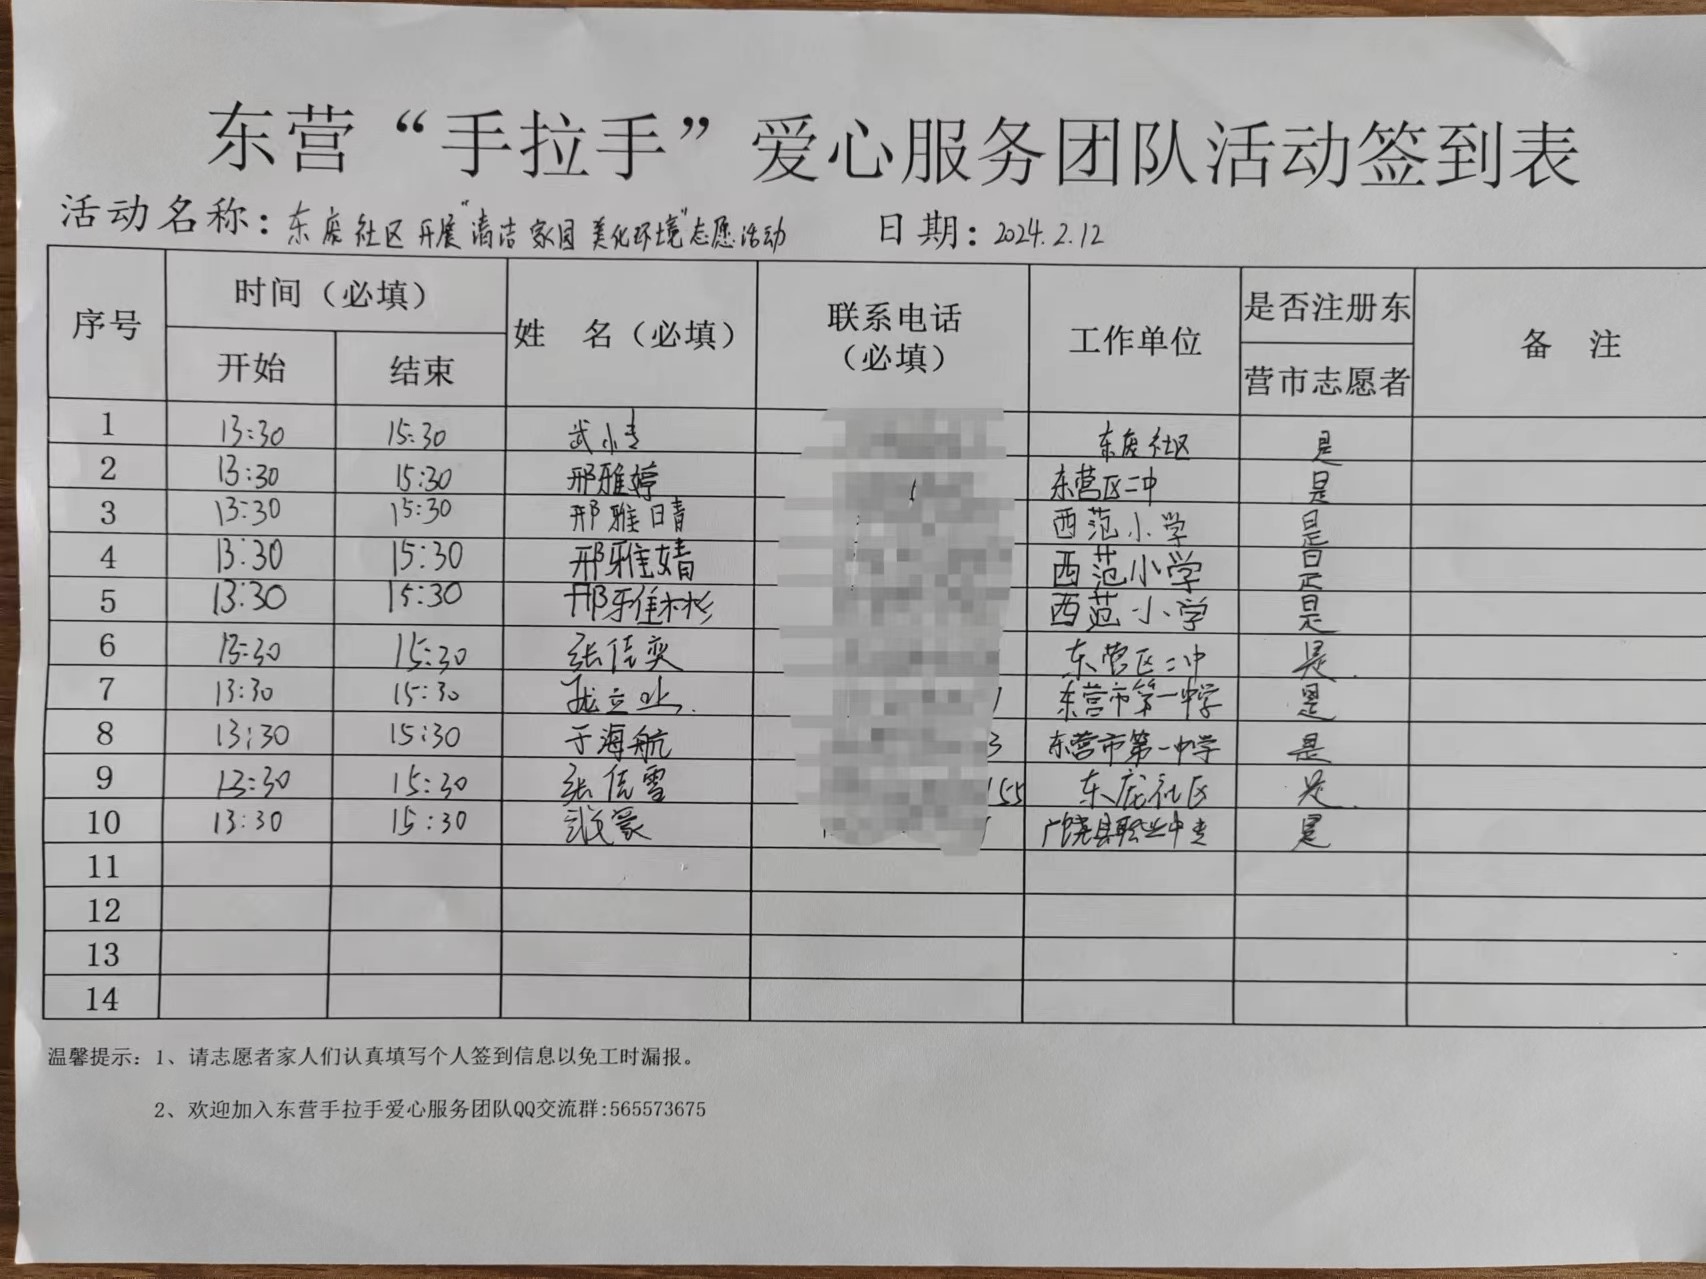 东营“手拉手”爱心服务团队活动签到表
活动名称：东庞社区开展“清洁家园 美化环境”志愿活动 日期：2024.2.12
序号 时间（必填） 姓 名（必填） 联系电话（必填） 工作单位 是否注册东营市志愿者 备 注
开始 结束
1 13:30 15:30 武小 东庞社区 是
2 13:30 15:30 邢雅婷 东营区二中 是
3 13:30 15:30 邢雅晴 西范小学 是
4 13:30 15:30 邢雅婧 西范小学 是
5 13:30 15:30 邢雅彬 西范小学 是
6 13:30 15:30 张佳奕 东营区二中 是
7 13:30 15:30 东营市第一中学 是
8 13:30 15:30 于海航 3 东营市第一中学 是
9 13:30 15:30 张佳雪 155 东庞社区 是
10 13:30 15:30 广饶县职业中专 是
11
12
13
14
温馨提示：1、请志愿者家人们认真填写个人签到信息以免工时漏报。
2、欢迎加入东营手拉手爱心服务团队QQ交流群:565573675